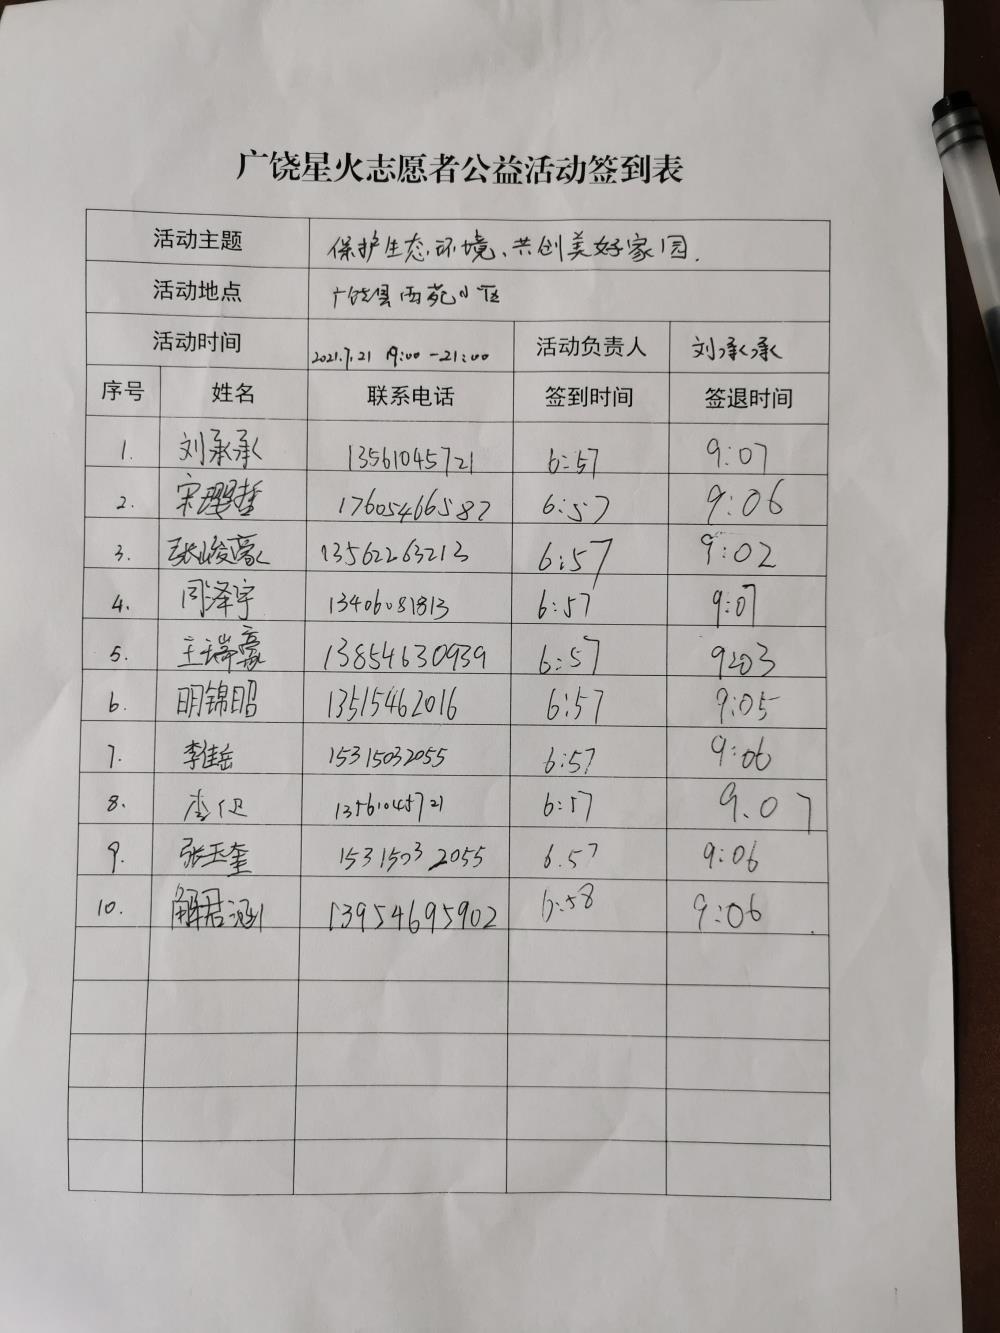 广饶星火志愿者公益活动签到表
活动主题 保护生态环境、共创美好家园.
活动地点 广饶县西苑小区
活动时间 2021.7.21 19:00-21:00 活动负责人 刘承承
序号 姓名 联系电话 签到时间 签退时间
1. 刘承承 13561045721 6:57 9:07
2. 宋 哲 17605466587 6:57 9:06
3. 张峻豪 13562263213 6:57 9:02
4. 周泽宇 13406081813 6:57 9:07
5. 王瑞豪 13854630939 6:57 9:03
6. 明锦昭 13515462016 6:57 9:05
7. 李佳岳 15315032055 6:57 9:06
8. 李 13561045721 6:57 9.07
9. 张玉奎 15315032055 6.57 9:06
10. 解君 13954695902 6:58 9:06